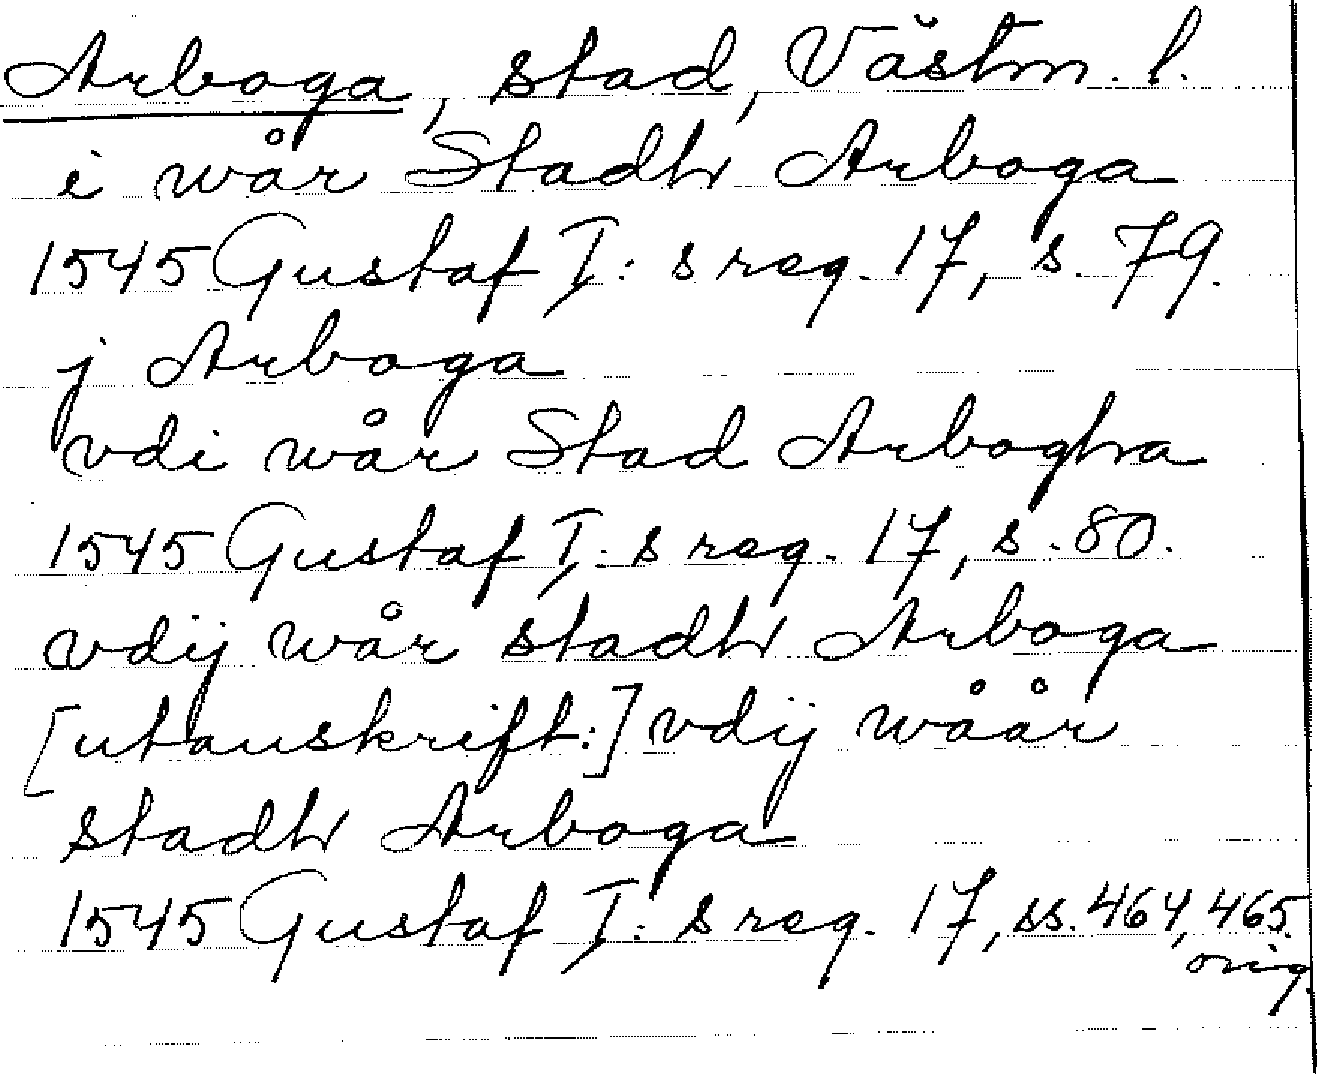 Arboga, stad, Västm. l.
i wår Stadh Arboga
1545 Gustaf I:s reg. 17, s. 79.
j Arboga
vdi wår Stad Arbogha
1545 Gustaf I:s reg. 17, s. 80.
vdij wår stadh Arboga
[utanskrift:] vdij wåår
stadh Arboga
1545 Gustaf I:s reg. 17, ss. 464, 465.
orig.